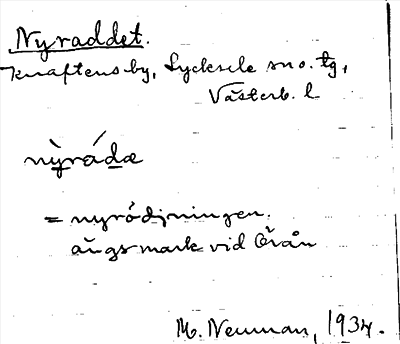 Nyraddet.
Knaftens by, Lycksele sn o. tg,
Västerb. l
nỳrádæ
= nyrödjningen.
ängsmark vid Örån
M. Neuman, 1934.